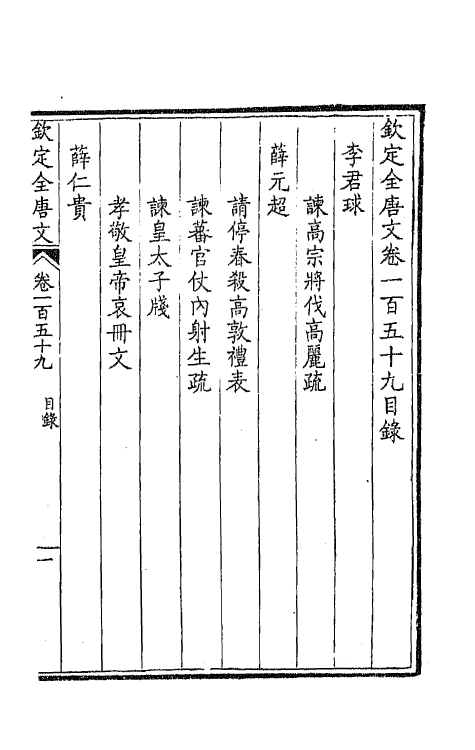 欽定全唐文卷一百五十九目錄
李君球
諫高宗將伐高麗疏
薛元超
請停春殺高敦禮表
諫蕃官仗內射生疏
諫皇太子牋
孝敬皇帝哀冊文
薛仁貴
欽定全唐文 卷一百五十九 目錄 一